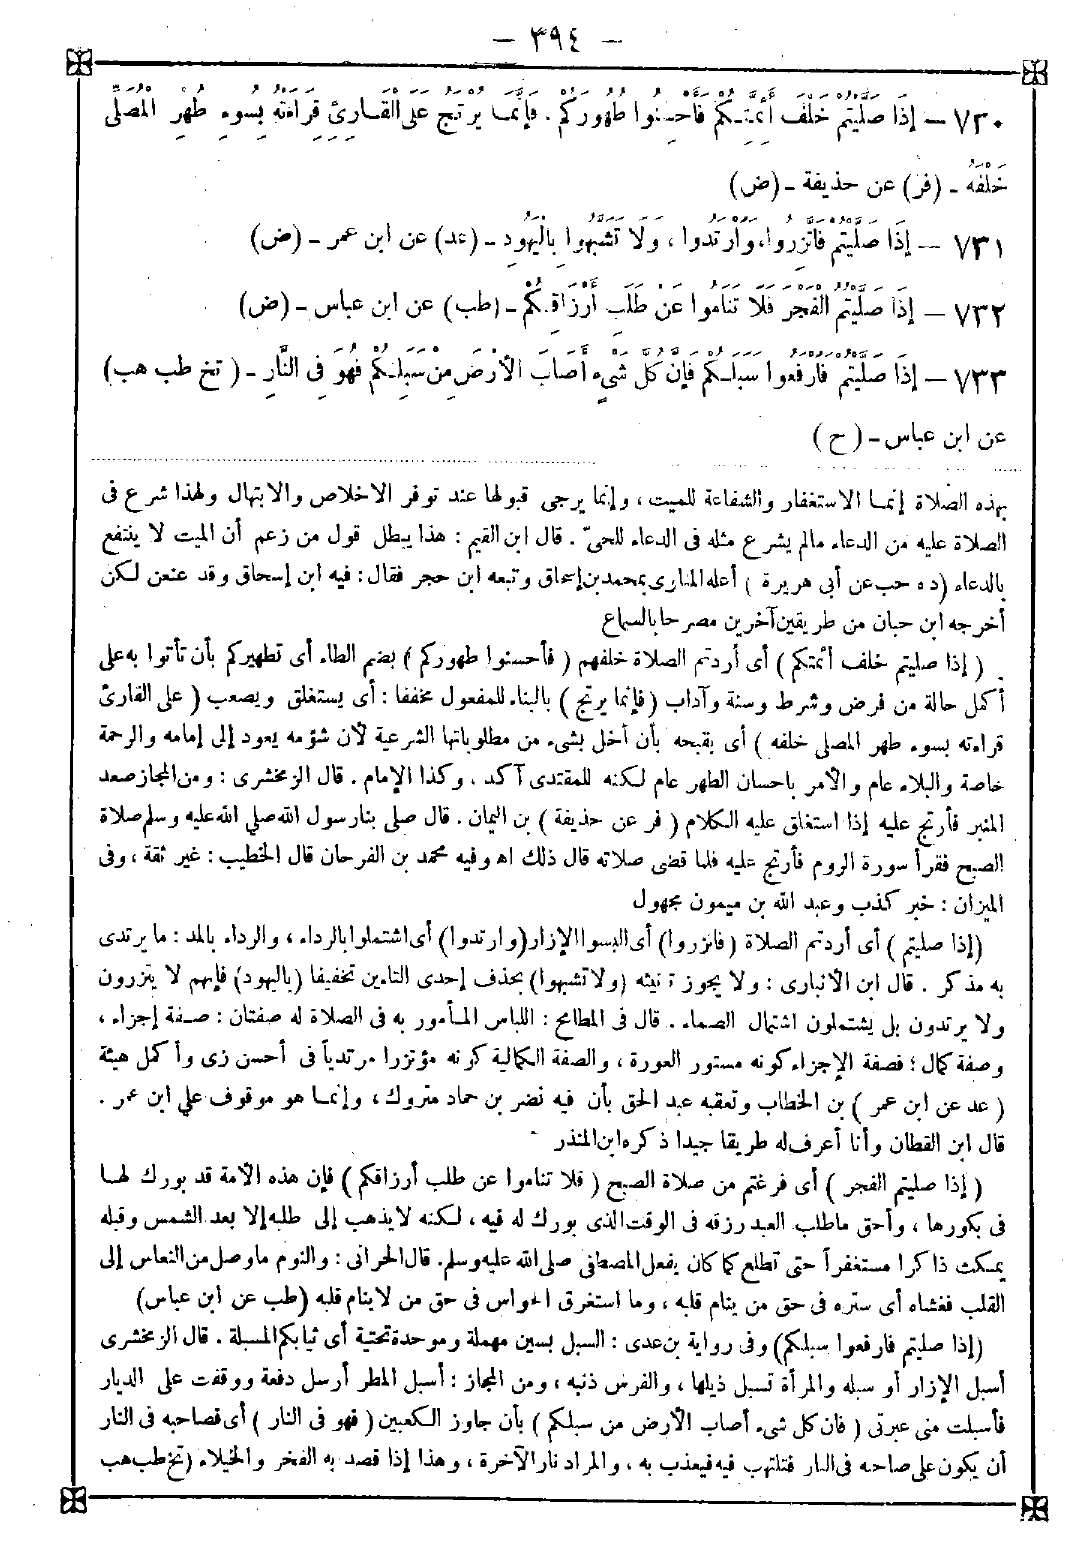 — ٣٩٤ —
٧٣٠ — إِذَا صَلَّيْتُمْ خَلْفَ أَئِمَّتِكُمْ فَأَحْسِنُوا طُهُورَكُمْ . فَإِنَّمَا يُرْتَجُ عَلَى الْقَارِئِ قِرَاءَتُهُ بِسُوءِ طُهْرِ الْمُصَلِّي
خَلْفَهُ - (فر) عن حذيفة - (ض)
٧٣١ — إِذَا صَلَّيْتُمْ فَاتَّزِرُوا، وَارْتَدُوا ، وَلَا تَشَبَّهُوا بِالْيَهُودِ - (عد) عن ابن عمر - (ض)
٧٣٢ — إِذَا صَلَّيْتُمُ الْفَجْرَ فَلَا تَنَامُوا عَنْ طَلَبِ أَرْزَاقِكُمْ - (طب) عن ابن عباس - (ض)
٧٣٣ — إِذَا صَلَّيْتُمْ فَارْفَعُوا سَبَلَكُمْ فَإِنَّ كُلَّ شَيْءٍ أَصَابَ الْأَرْضَ مِنْ سَبَلِكُمْ فَهُوَ فِي النَّارِ - ( تخ طب هب)
عن ابن عباس - ( ح )
بهذه الصلاة إنما الاستغفار والشفاعة للميت ، وإنما يرجى قبولها عند توفر الاخلاص والابتهال ولهذا شرع فى
الصلاة عليه من الدعاء مالم يشرع مثله فى الدعاء للحىّ . قال ابن القيم : هذا يبطل قول من زعم أن الميت لا ينتفع
بالدعاء (د ه حب عن أبى هريرة ) أعله المناوى بمحمد بن إسحاق وتبعه ابن حجر فقال : فيه ابن إسحاق وقد عنعن لكن
أخرجه ابن حبان من طريقين آخرين مصرحا بالسماع
( إذا صليتم خلف أئمتكم ) أى أردتم الصلاة خلفهم ( فأحسنوا طهوركم ) بضم الطاء أى تطهيركم بأن تأتوا به على
أكمل حالة من فرض وشرط وسنة وآداب ( فإنما يرتج ) بالبناء للمفعول مخففا : أى يستغلق ويصعب ( على القارئ
قراءته بسوء طهر المصلى خلفه ) أى بقبحه بأن أخل بشىء من مطلوباتها الشرعية لأن شؤمه يعود إلى إمامه والرحمة
خاصة والبلاء عام والأمر باحسان الطهر عام لكنه للمقتدى آكد . وكذا الإمام . قال الزمخشرى : ومن المجاز صعد
المنبر فأرتج عليه إذا استغلق عليه الكلام ( فر عن حذيفة ) بن اليمان . قال صلى بنا رسول الله صلى الله عليه وسلم صلاة
الصبح فقرأ سورة الروم فأرتج عليه فلما قضى صلاته قال ذلك اه وفيه محمد بن الفرحان قال الخطيب : غير ثقة ، وفى
الميزان : خبر كذب وعبد الله بن ميمون مجهول
(إذا صليتم ) أى أردتم الصلاة (فاتزروا) أى البسوا الإزار (وارتدوا) أى اشتملوا بالرداء ، والرداء بالمد : ما يرتدى
به مذكر . قال ابن الأنبارى : ولا يجوز تأنيثه (ولا تشبهوا) بحذف إحدى التاءين تخفيفا (باليهود) فإنهم لا يتزرون
ولا يرتدون بل يشتملون اشتمال الصماء . قال فى المطامح : اللباس المأمور به فى الصلاة له صفتان : صفة إجزاء ،
وصفة كمال ؛ فصفة الإجزاء كونه مستور العورة ، والصفة الكمالية كونه مؤتزرا مرتدياً فى أحسن زى وأكمل هيئة
( عد عن ابن عمر ) بن الخطاب وتعقبه عبد الحق بأن فيه نضر بن حماد متروك ، وإنما هو موقوف على ابن عمر .
قال ابن القطان وأنا أعرف له طريقا جيدا ذكره ابن المنذر
( إذا صليتم الفجر ) أى فرغتم من صلاة الصبح ( فلا تناموا عن طلب أرزاقكم ) فإن هذه الأمة قد بورك لها
فى بكورها ، وأحق ما طلب العبد رزقه فى الوقت الذى بورك له فيه ، لكنه لا يذهب إلى طلبه إلا بعد الشمس وقبله
يمكث ذاكرا مستغفراً حتى تطلع كما كان يفعل المصطفى صلى الله عليه وسلم . قال الحرانى : والنوم ما وصل من النعاس إلى
القلب فغشاه أى ستره فى حق من ينام قلبه ، وما استغرق الحواس فى حق من لا ينام قلبه (طب عن ابن عباس)
(إذا صليتم فارفعوا سبلكم) وفى رواية بن عدى : السبل بسين مهملة وموحدة تحتية أى ثيابكم المسبلة . قال الزمخشرى
أسبل الإزار أو سبله والمرأة تسبل ذيلها ، والفرس ذنبه ، ومن المجاز : أسبل المطر أرسل دفعة ووقفت على الديار
فأسبلت منى عبرتى ( فان كل شىء أصاب الأرض من سبلكم ) بأن جاوز الكعبين ( فهو فى النار ) أى فصاحبه فى النار
أن يكون على صاحبه فى النار فتلتهب فيه فيعذب به ، والمراد نار الآخرة ، وهذا إذا قصد به الفخر والخيلاء (تخ طب هب